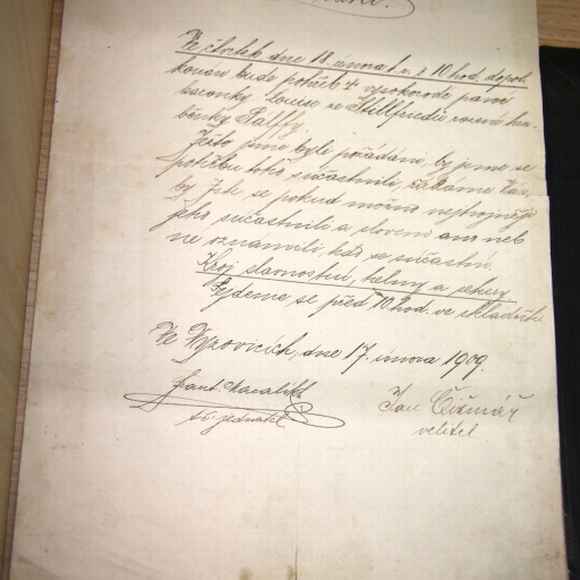 Ve čtvrtek dne 18. února t. r. v 10 hod. dopol.
konán bude pohřeb † vysokorodé paní
baronky Louise ze Stillfriedů rozené hra-
běnky Pálffy.
Ježto jsme byli požádáni, by jsme se
pohřbu toho súčastnili, žádáme Vás,
by jste se pokud možno nejhojněji
jeho súčastnili a slovem ano neb
ne oznámili, kdo se súčastní.
Kroj slavnostní, helmy a sekery
Sejdeme se před 10 hod. ve skladišti
Ve Vyzovicích, dne 17. února 1909.
Frant.
t. č. jednatel
Jan Čižmář
velitel